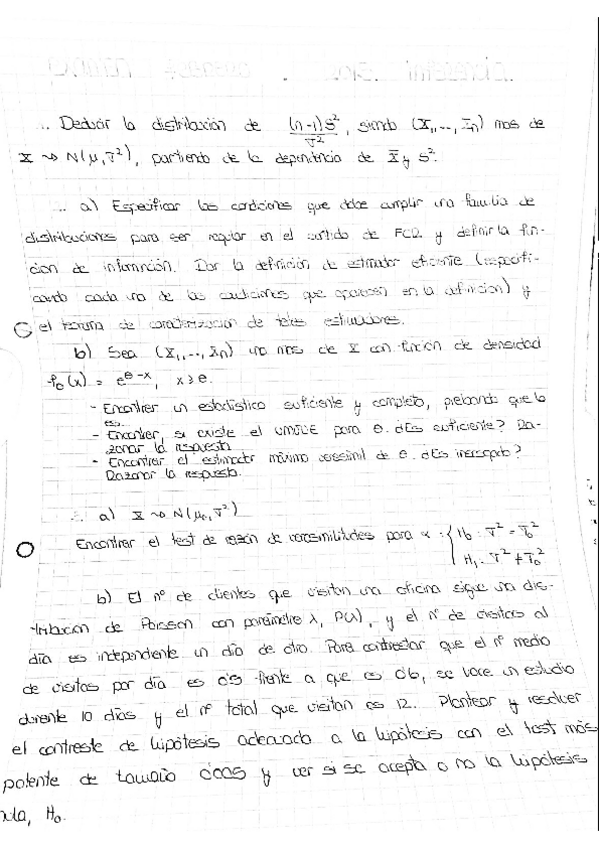 ... Deducir la distribución de (n-1)S² / σ², siendo (X₁,..., Xn) mas de
X ~> N(μ, σ²), partiendo de la dependencia de X̄ y S².
... a) Especificar las condiciones que debe cumplir una familia de
distribuciones para ser regular en el sentido de FCR y definir la fun-
ción de información. Dar la definición de estimador eficiente (especifi-
cando cada una de las condiciones que aparecen en la definición) y
el teorema de caracterización de tales estimadores.
b) Sea (X₁,..., Xn) una mas de X con función de densidad
fθ(x) = e^(θ-x), x ≥ θ.
- Encontrar un estadístico suficiente y completo, probando que lo
es.
- Encontrar, si existe el UMVUE para θ. ¿Es suficiente? Ra-
zonar la respuesta.
- Encontrar el estimador máximo verosímil de θ. ¿Es insesgado?
Razonar la respuesta.
a) X ~> N(μ, σ²)
Encontrar el test de razón de verosimilitudes para { H₀: σ² = σ₀²
H₁: σ² ≠ σ₀²
b) El nº de clientes que visitan una oficina sigue una dis-
tribución de Poisson con parámetro λ, P(λ), y el nº de visitas al
día es independiente un día de otro. Para contrastar que el nº medio
de visitas por día es 0'5 frente a que es 0'6, se hace un estudio
durante 10 días y el nº total que visitan es 12. Plantear y resolver
el contraste de hipótesis adecuado a la hipótesis con el test más
potente de tamaño y ver si se acepta o no la hipótesis
nula, H₀.